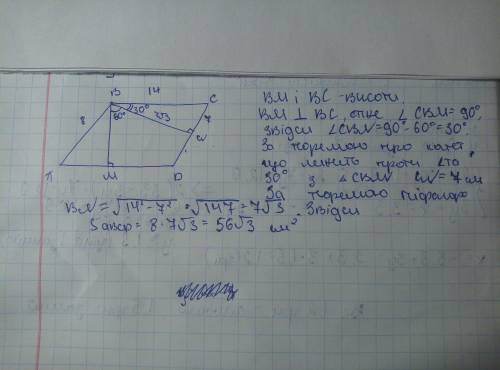 14
B
C
30°
60°
8
7√3
7
N
A
M
D
BM і BC - висоти.
BM ⊥ BC, отже ∠CBM = 90°,
Звідси ∠CBN = 90° - 60° = 30°.
За теоремою про катет,
що лежить проти кута
30° з △CBN CN = 7 см
За теоремою Піфагора
BN = √14² - 7² = √147 = 7√3. Звідси
SABCD = 8 · 7√3 = 56√3 см²